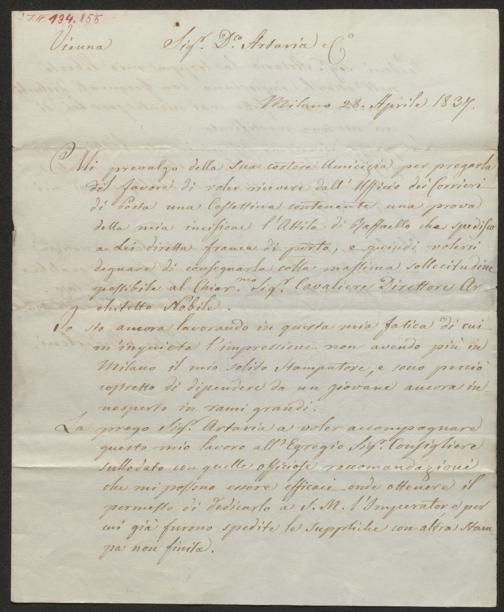 I.N. 134.855
Vienna Sig.r D.co Artaria e C.o
Milano 28. Aprile 1837.
Mi prevalgo della sua cortese Amicizia per pregarla
del favore di voler ricevere dall'Ufficio dei Corrieri
di Posta una Cassettina contenente una prova
della mia incisione l'Attila di Raffaello che spedisco
a Lei diretta franca di porto, e quindi volersi
degnare di consegnarla colla massima sollecitudine
possibile al Chiar.mo Sig.r Cavaliere Direttore Ar
chitetto Nobile.
Io sto ancora lavorando in questa mia fatica di cui
m'inquieta l'impressione non avendo più in
Milano il mio solito Stampatore, e sono perciò
costretto di dipendere da un giovane ancora in
nesperto in rami grandi.
La prego Sig.r Artaria a voler accompagnare
questo mio lavoro all'Egregio Sig.r Consigliere
sullodato con quelle offiziose raccomandazioni
che mi possono essere efficaci onde ottenere il
permesso di dedicarlo a S. M. l'Imperatore per
cui già furono spedite le Suppliche con altra Stam
pa non finita.